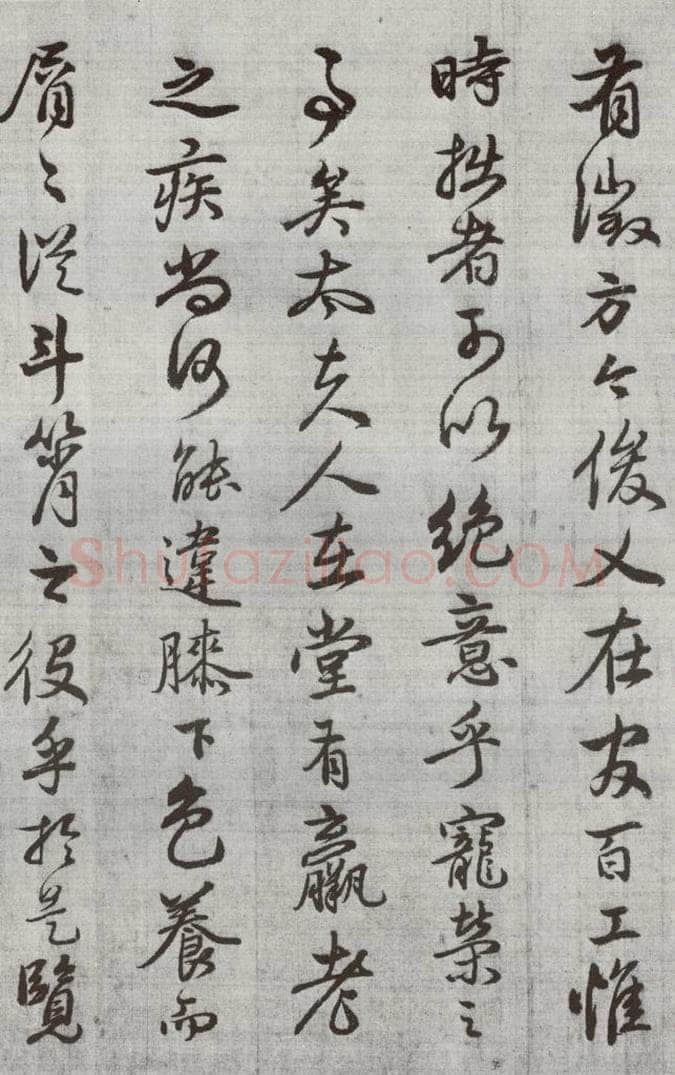 有徵方今俊乂在官百工惟
時拙者可以絕意乎寵榮之
事矣太夫人在堂有羸老
之疾尚何能違膝下色養而
屑〻從斗筲之役乎於是覽
Shufaziliao.COM